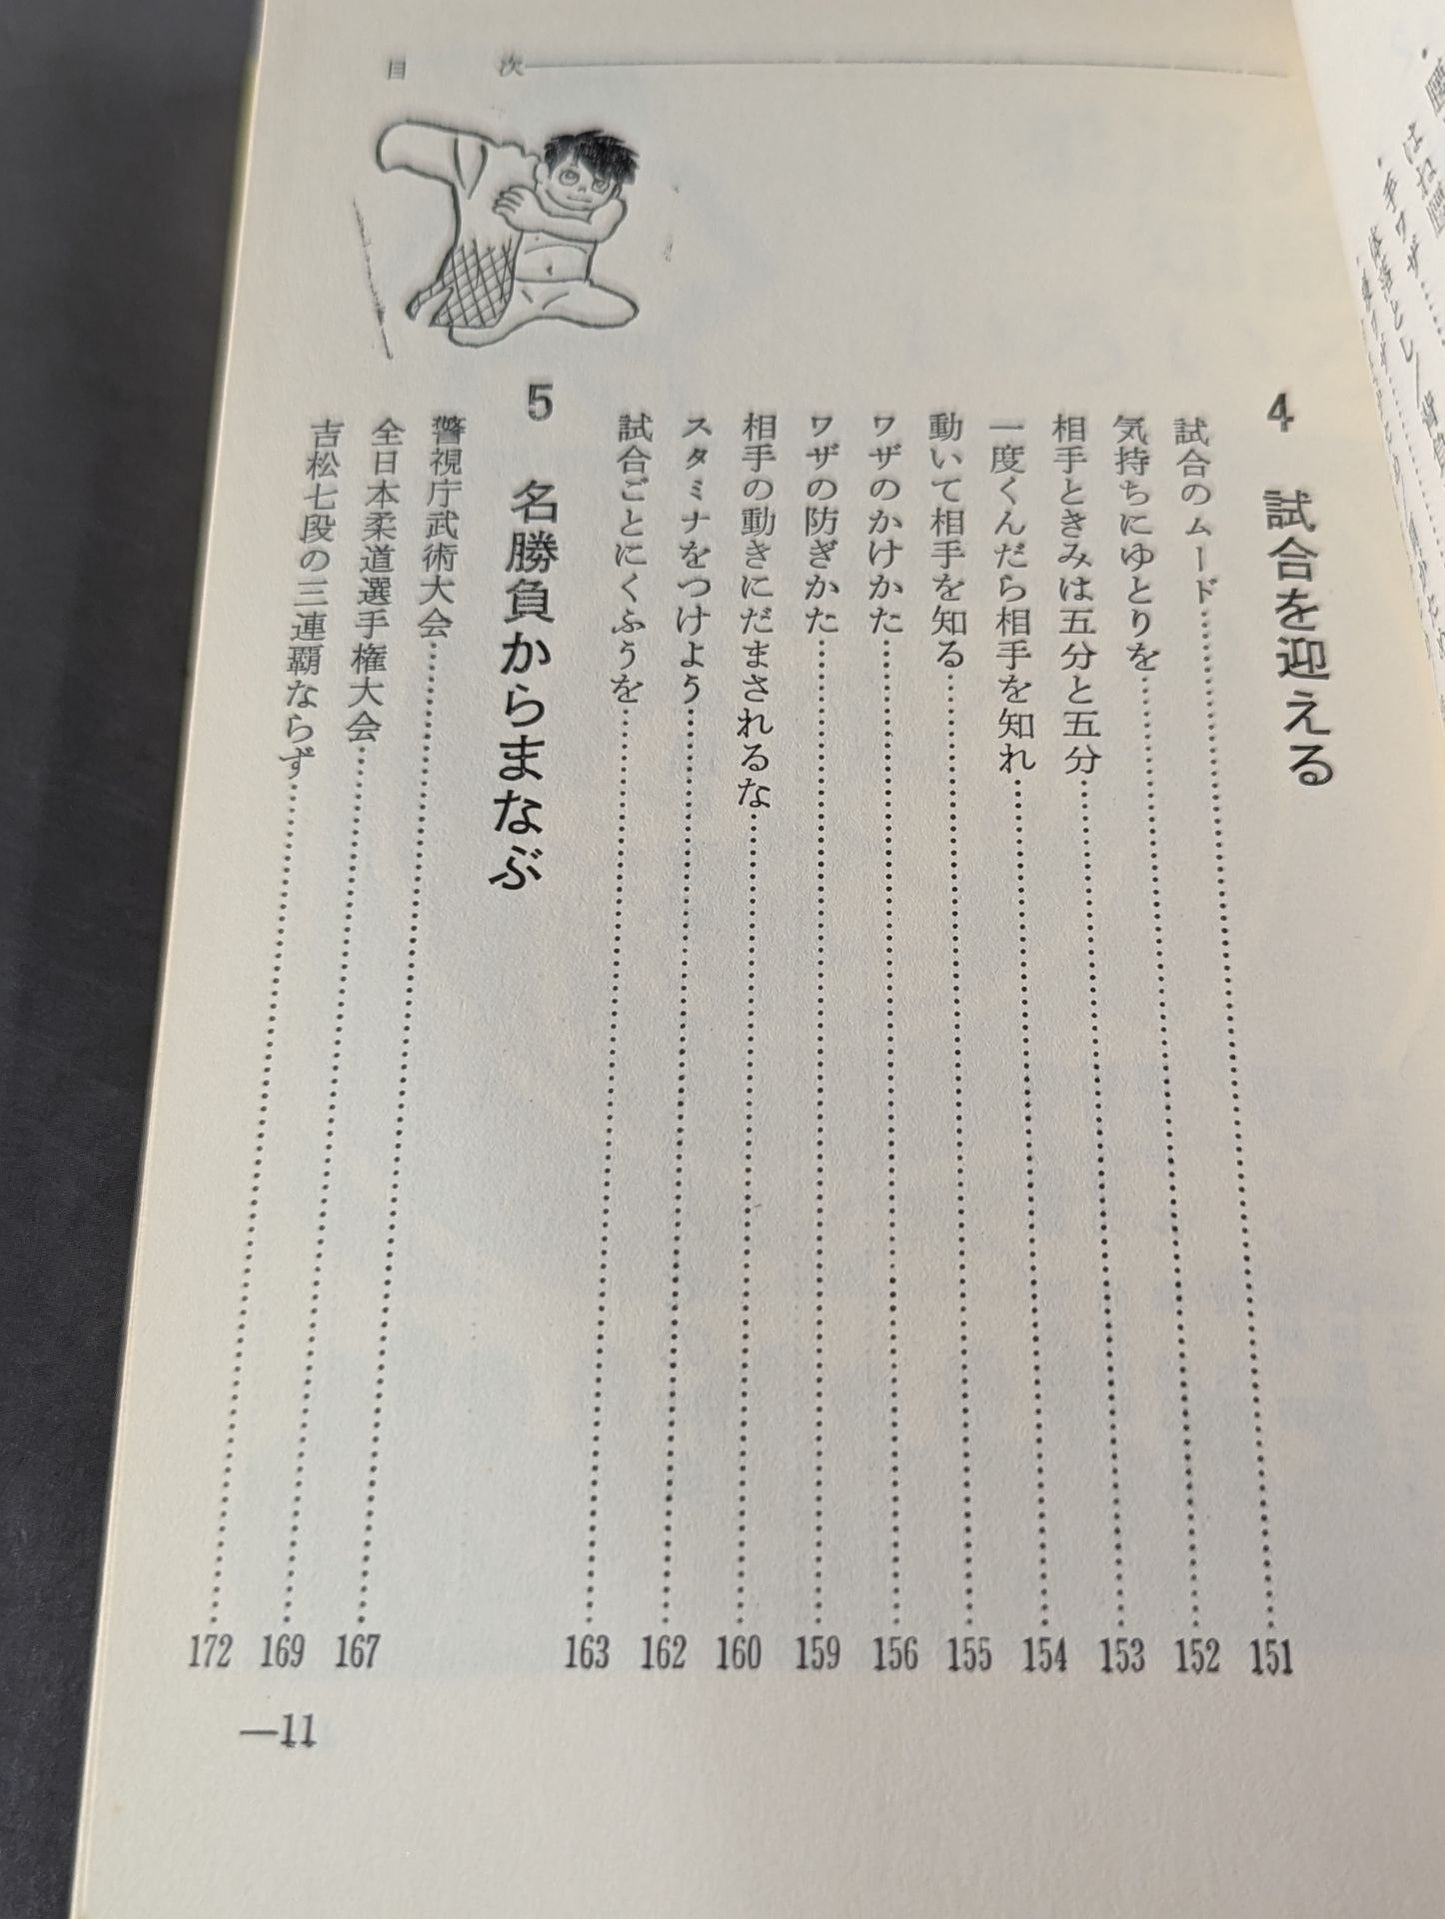 目次
4 試合を迎える
試合のムード……151
気持ちにゆとりを……152
相手ときみは五分と五分……153
一度くんだら相手を知れ……154
動いて相手を知る……155
ワザのかけかた……156
ワザの防ぎかた……159
相手の動きにだまされるな……160
スタミナをつけよう……162
試合ごとにくふうを……163
5 名勝負からまなぶ
警視庁武術大会……167
全日本柔道選手権大会……169
吉松七段の三連覇ならず……172
—11